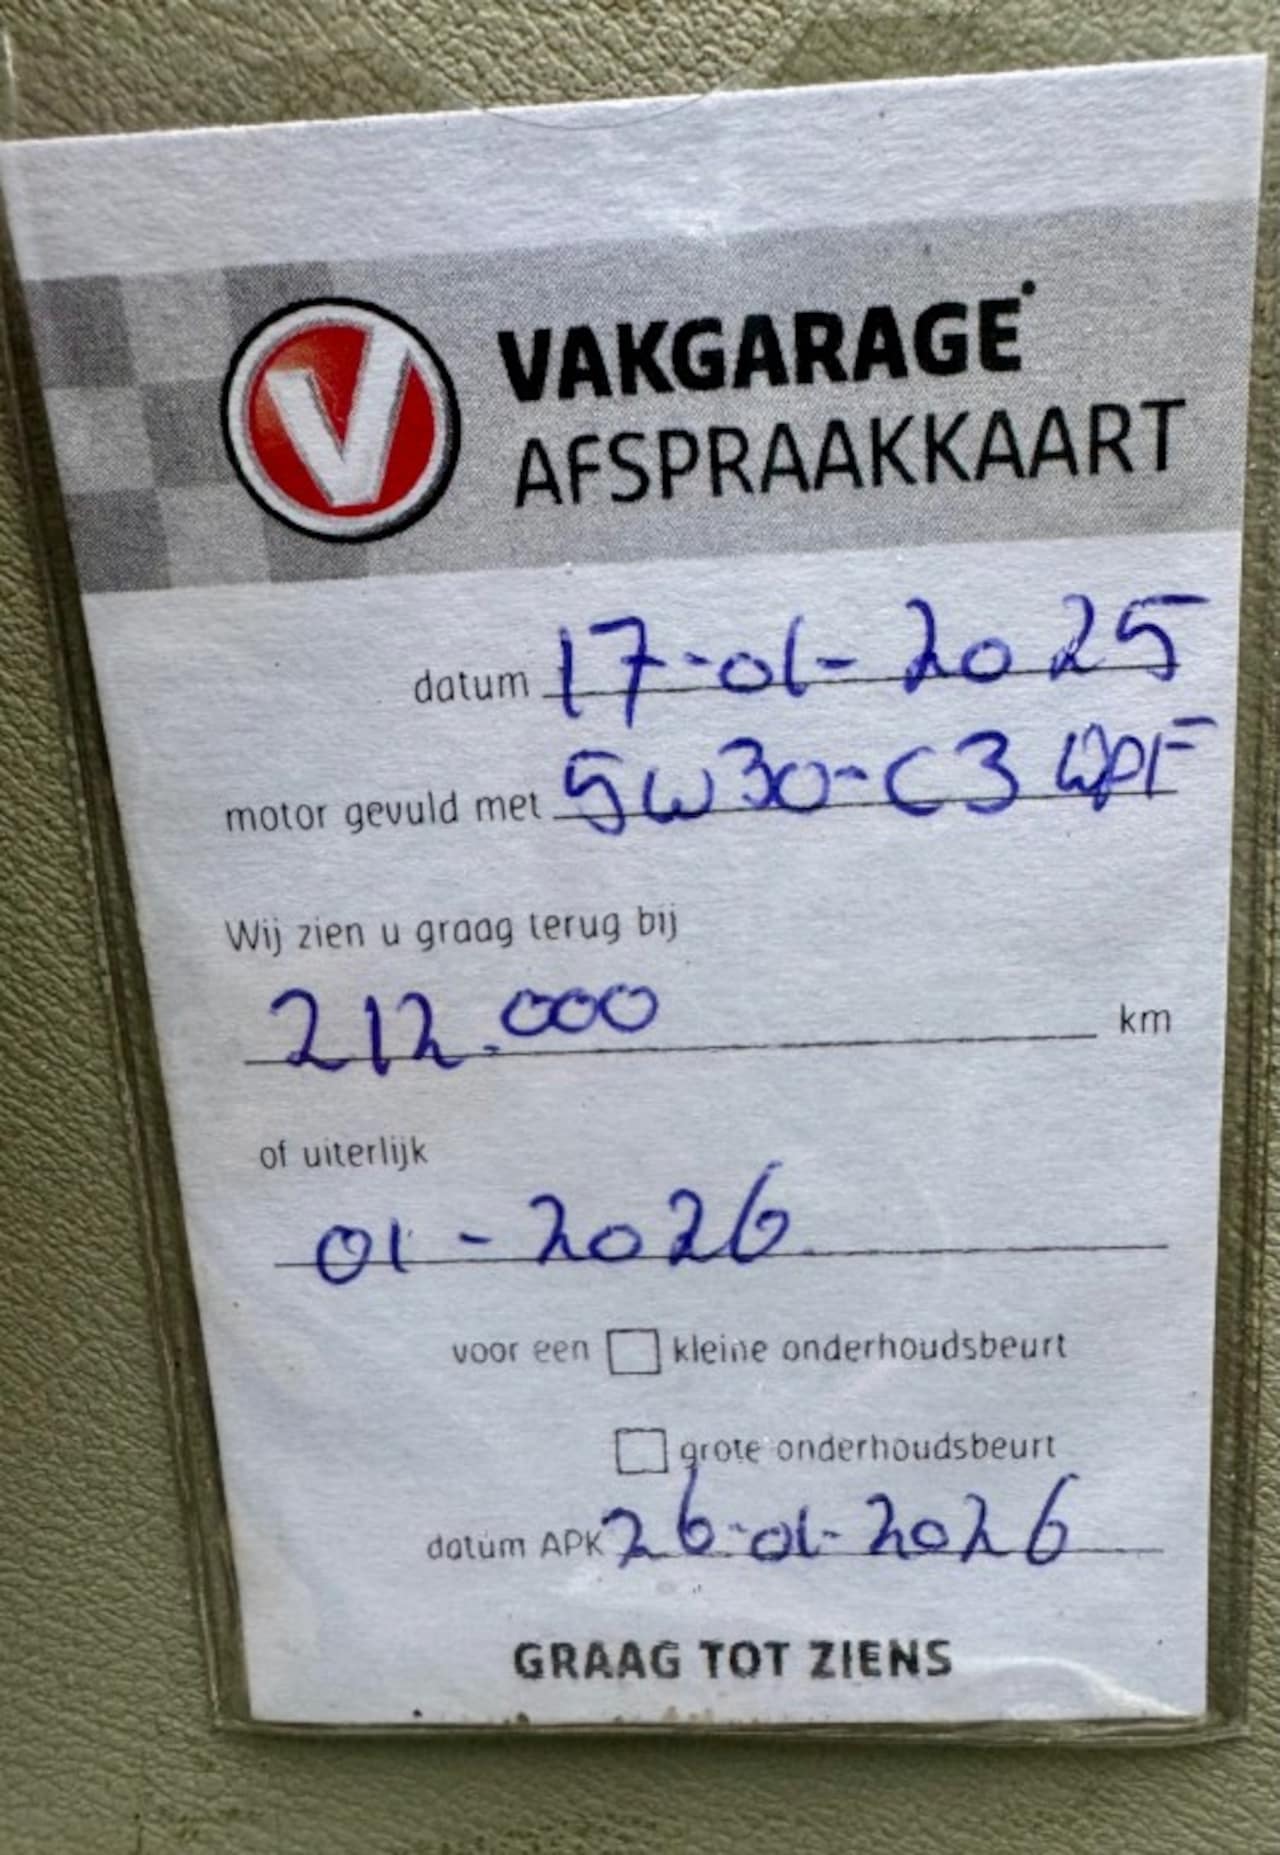 V
VAKGARAGE
AFSPRAAKKAART
datum 17-01-2025
motor gevuld met 5W30-C3 DPF
Wij zien u graag terug bij
212.000 km
of uiterlijk
01-2026
voor een kleine onderhoudsbeurt
grote onderhoudsbeurt
datum APK 26-01-2026
GRAAG TOT ZIENS